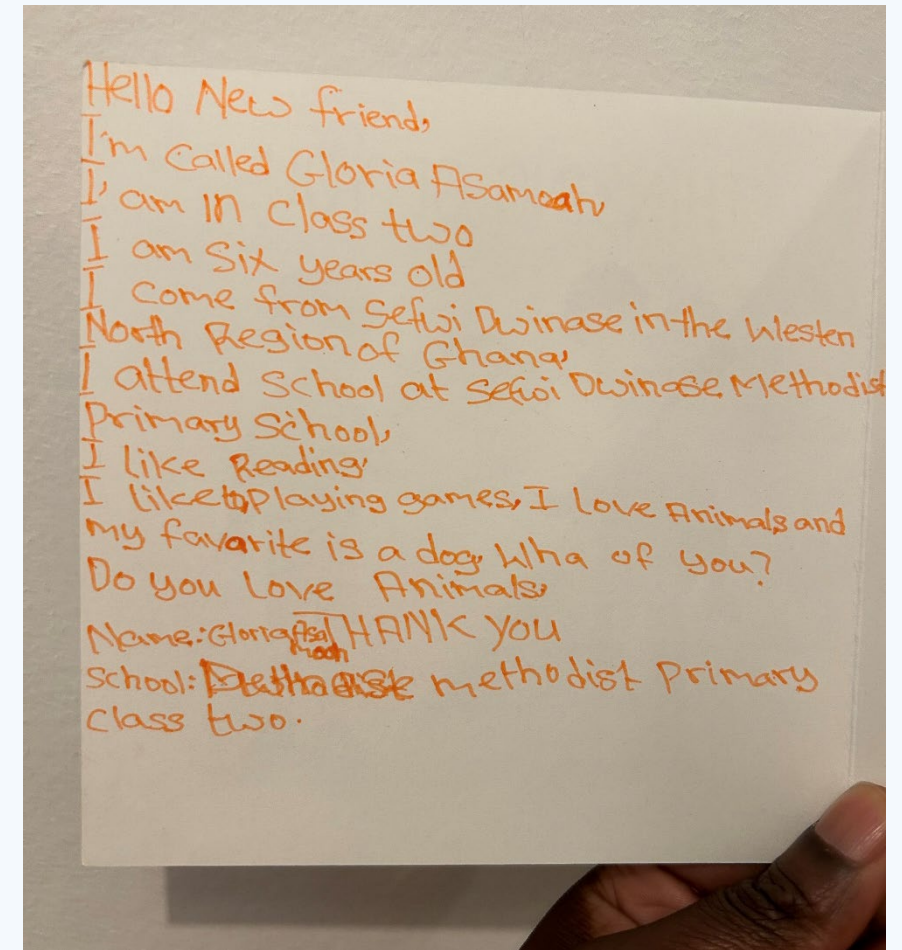 Hello New friend,
I'm Called Gloria Asamoah
I' am in Class two
I am Six years old
I come from Sefwi Dwinase in the Westen
North Region of Ghana,
I attend School at Sefwi Dwinase Methodist
Primary School,
I like Reading,
I like to playing games, I love Animals and
my favarite is a dog, Wha of you?
Do you Love Animals,
Name: Gloria Asamoah THANK YOU
School: methodist Primary
Class two.